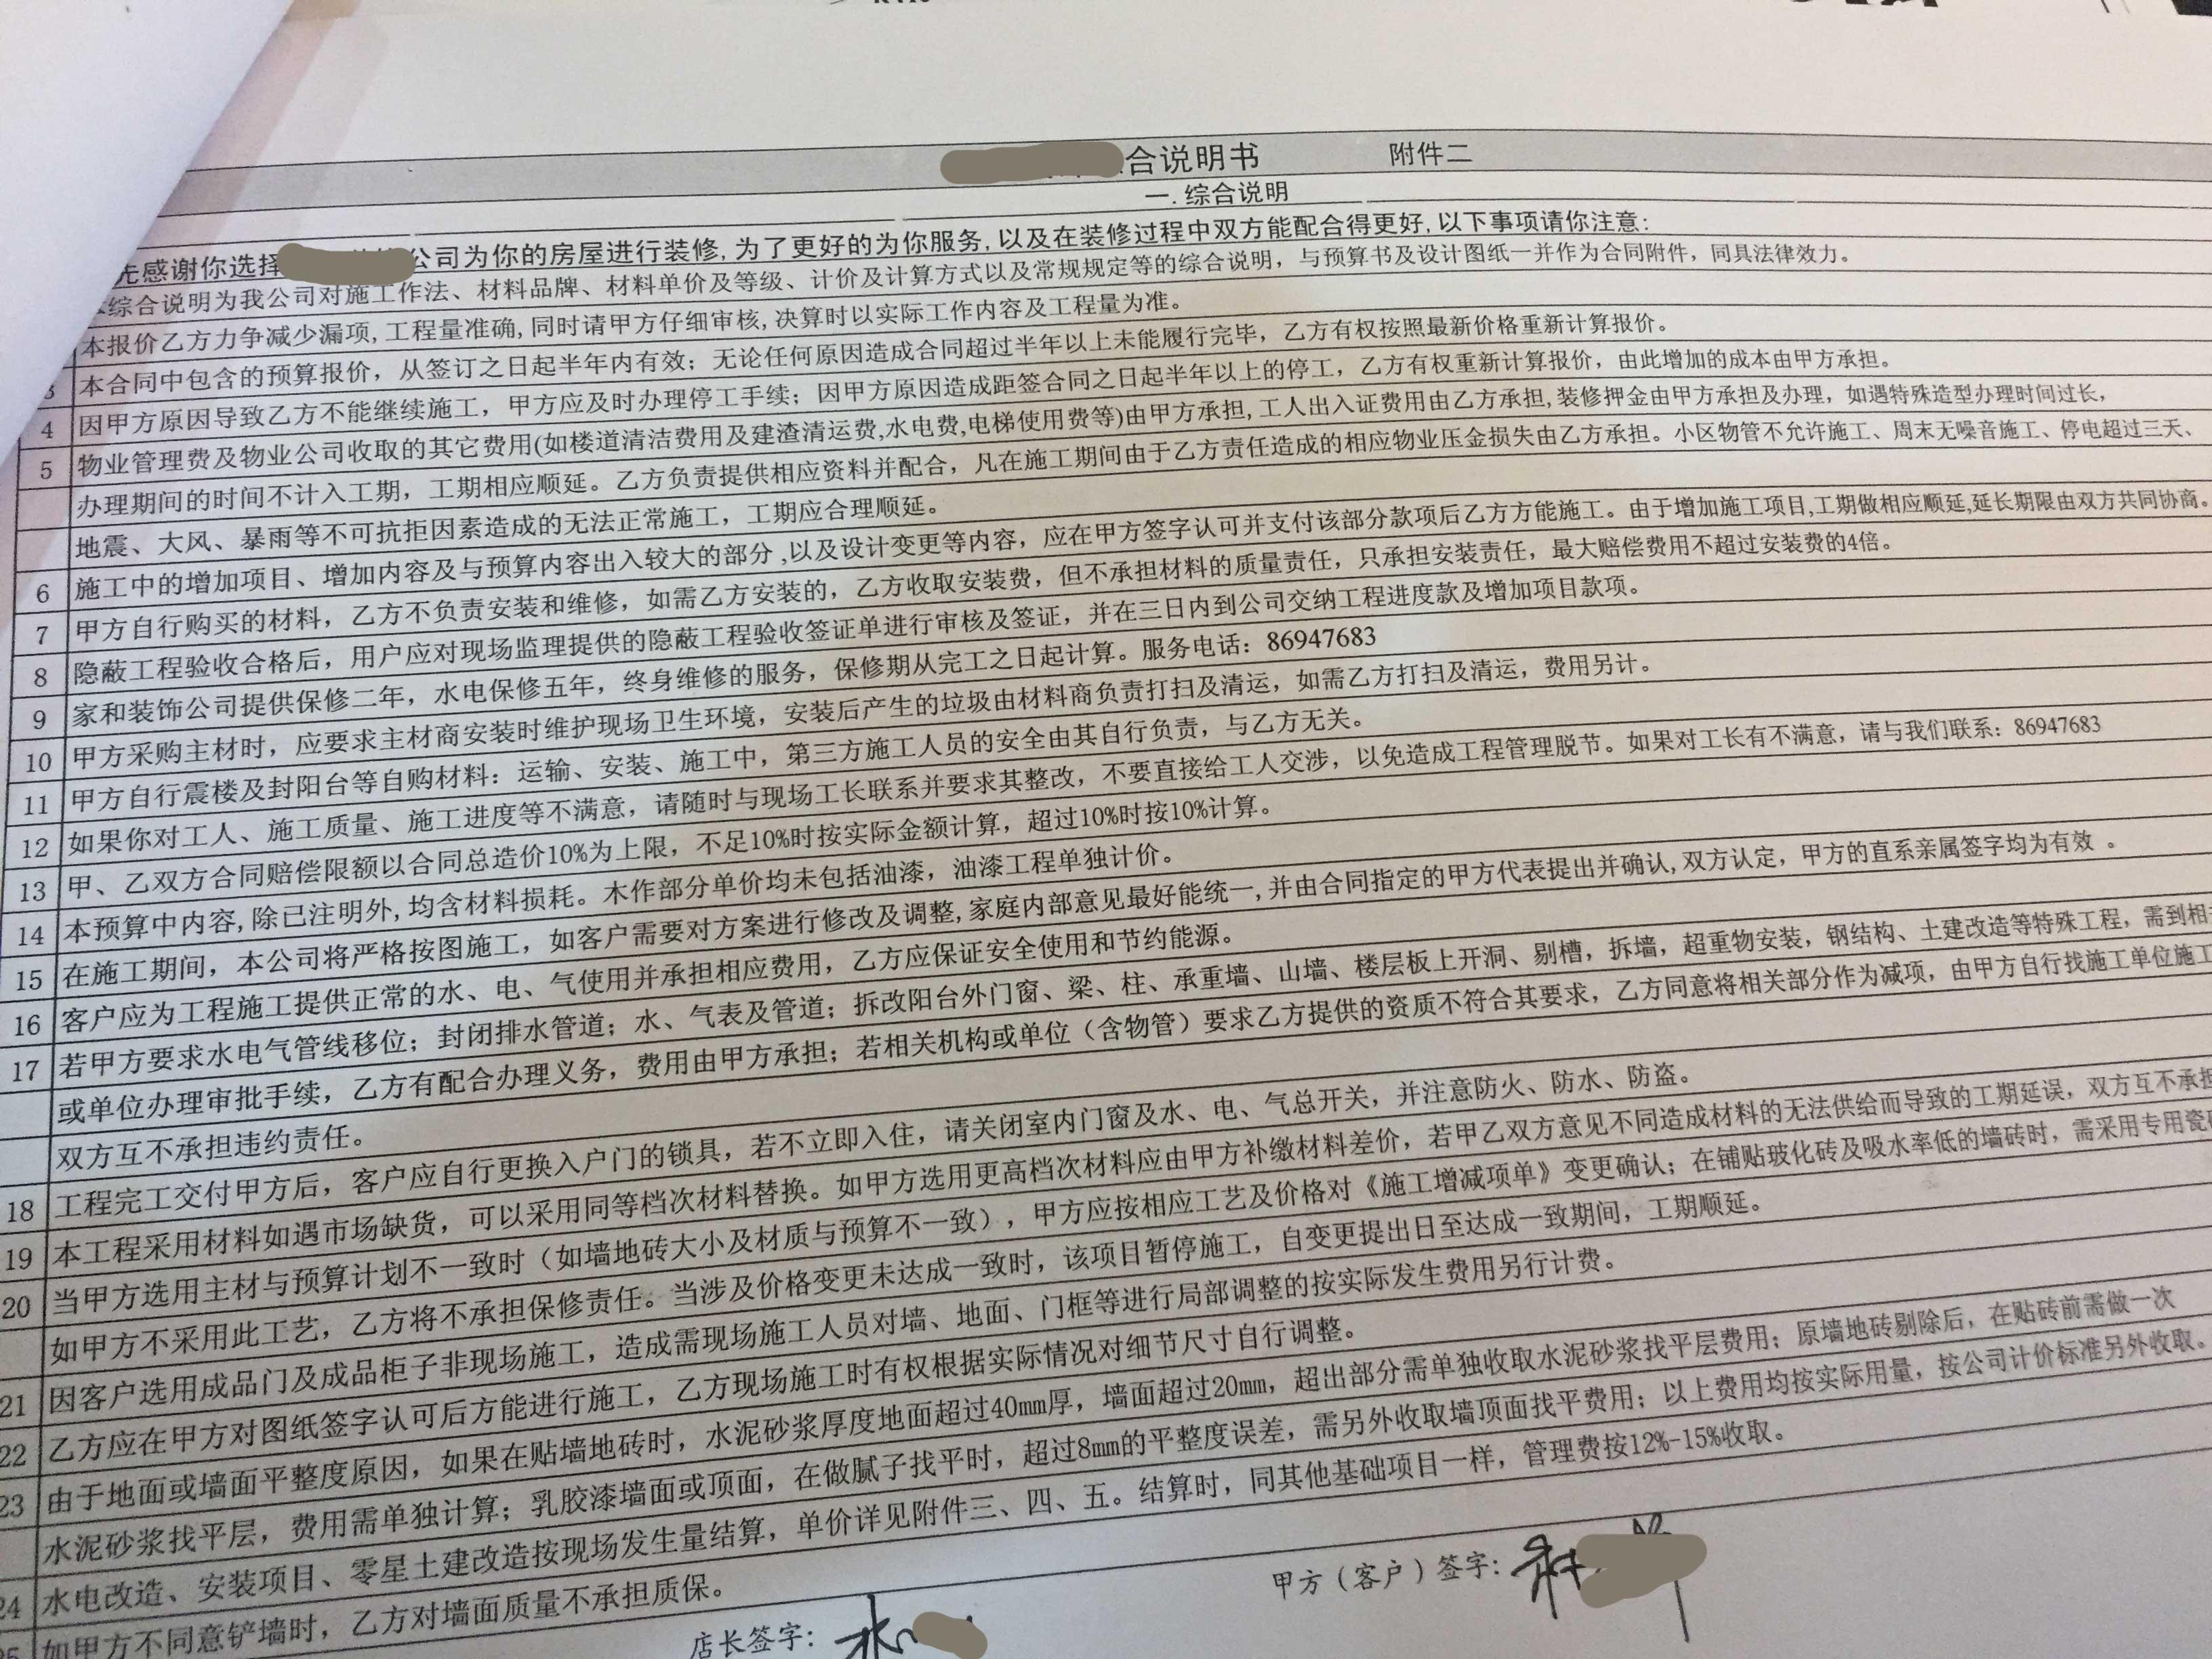 合说明书 附件二
一.综合说明
感谢你选择 公司为你的房屋进行装修,为了更好的为你服务,以及在装修过程中双方能配合得更好,以下事项请你注意:
综合说明为我公司对施工作法、材料品牌、材料单价及等级、计价及计算方式以及常规规定等的综合说明，与预算书及设计图纸一并作为合同附件，同具法律效力。
本报价乙方力争减少漏项,工程量准确,同时请甲方仔细审核,决算时以实际工作内容及工程量为准。
3 本合同中包含的预算报价，从签订之日起半年内有效；无论任何原因造成合同超过半年以上未能履行完毕，乙方有权按照最新价格重新计算报价。
4 因甲方原因导致乙方不能继续施工，甲方应及时办理停工手续；因甲方原因造成距签合同之日起半年以上的停工，乙方有权重新计算报价，由此增加的成本由甲方承担。
5 物业管理费及物业公司收取的其它费用(如楼道清洁费用及建渣清运费,水电费,电梯使用费等)由甲方承担,工人出入证费用由乙方承担,装修押金由甲方承担及办理，如遇特殊造型办理时间过长，
办理期间的时间不计入工期，工期相应顺延。乙方负责提供相应资料并配合，凡在施工期间由于乙方责任造成的相应物业压金损失由乙方承担。小区物管不允许施工、周末无噪音施工、停电超过三天、
地震、大风、暴雨等不可抗拒因素造成的无法正常施工，工期应合理顺延。
6 施工中的增加项目、增加内容及与预算内容出入较大的部分,以及设计变更等内容，应在甲方签字认可并支付该部分款项后乙方方能施工。由于增加施工项目,工期做相应顺延,延长期限由双方共同协商。
7 甲方自行购买的材料，乙方不负责安装和维修，如需乙方安装的，乙方收取安装费，但不承担材料的质量责任，只承担安装责任，最大赔偿费用不超过安装费的4倍。
8 隐蔽工程验收合格后，用户应对现场监理提供的隐蔽工程验收签证单进行审核及签证，并在三日内到公司交纳工程进度款及增加项目款项。
9 家和装饰公司提供保修二年，水电保修五年，终身维修的服务，保修期从完工之日起计算。服务电话：86947683
10 甲方采购主材时，应要求主材商安装时维护现场卫生环境，安装后产生的垃圾由材料商负责打扫及清运，如需乙方打扫及清运，费用另计。
11 甲方自行震楼及封阳台等自购材料：运输、安装、施工中，第三方施工人员的安全由其自行负责，与乙方无关。
12 如果你对工人、施工质量、施工进度等不满意，请随时与现场工长联系并要求其整改，不要直接给工人交涉，以免造成工程管理脱节。如果对工长有不满意，请与我们联系：86947683
13 甲、乙双方合同赔偿限额以合同总造价10%为上限，不足10%时按实际金额计算，超过10%时按10%计算。
14 本预算中内容,除已注明外,均含材料损耗。木作部分单价均未包括油漆，油漆工程单独计价。
15 在施工期间，本公司将严格按图施工，如客户需要对方案进行修改及调整,家庭内部意见最好能统一,并由合同指定的甲方代表提出并确认,双方认定，甲方的直系亲属签字均为有效 。
16 客户应为工程施工提供正常的水、电、气使用并承担相应费用，乙方应保证安全使用和节约能源。
17 若甲方要求水电气管线移位；封闭排水管道；水、气表及管道；拆改阳台外门窗、梁、柱、承重墙、山墙、楼层板上开洞、剔槽，拆墙，超重物安装，钢结构、土建改造等特殊工程，需到相
或单位办理审批手续，乙方有配合办理义务，费用由甲方承担；若相关机构或单位（含物管）要求乙方提供的资质不符合其要求，乙方同意将相关部分作为减项，由甲方自行找施工单位施工
双方互不承担违约责任。
18 工程完工交付甲方后，客户应自行更换入户门的锁具，若不立即入住，请关闭室内门窗及水、电、气总开关，并注意防火、防水、防盗。
19 本工程采用材料如遇市场缺货，可以采用同等档次材料替换。如甲方选用更高档次材料应由甲方补缴材料差价，若甲乙双方意见不同造成材料的无法供给而导致的工期延误，双方互不承担
20 当甲方选用主材与预算计划不一致时（如墙地砖大小及材质与预算不一致），甲方应按相应工艺及价格对《施工增减项单》变更确认；在铺贴玻化砖及吸水率低的墙砖时，需采用专用瓷
如甲方不采用此工艺，乙方将不承担保修责任。当涉及价格变更未达成一致时，该项目暂停施工，自变更提出日至达成一致期间，工期顺延。
21 因客户选用成品门及成品柜子非现场施工，造成需现场施工人员对墙、地面、门框等进行局部调整的按实际发生费用另行计费。
22 乙方应在甲方对图纸签字认可后方能进行施工，乙方现场施工时有权根据实际情况对细节尺寸自行调整。
23 由于地面或墙面平整度原因，如果在贴墙地砖时，水泥砂浆厚度地面超过40mm厚，墙面超过20mm，超出部分需单独收取水泥砂浆找平层费用；原墙地砖剔除后，在贴砖前需做一次
水泥砂浆找平层，费用需单独计算；乳胶漆墙面或顶面，在做腻子找平时，超过8mm的平整度误差，需另外收取墙顶面找平费用；以上费用均按实际用量，按公司计价标准另外收取。
24 水电改造、安装项目、零星土建改造按现场发生量结算，单价详见附件三、四、五。结算时，同其他基础项目一样，管理费按12%-15%收取。
25 如甲方不同意铲墙时，乙方对墙面质量不承担质保。
店长签字： 甲方（客户）签字：